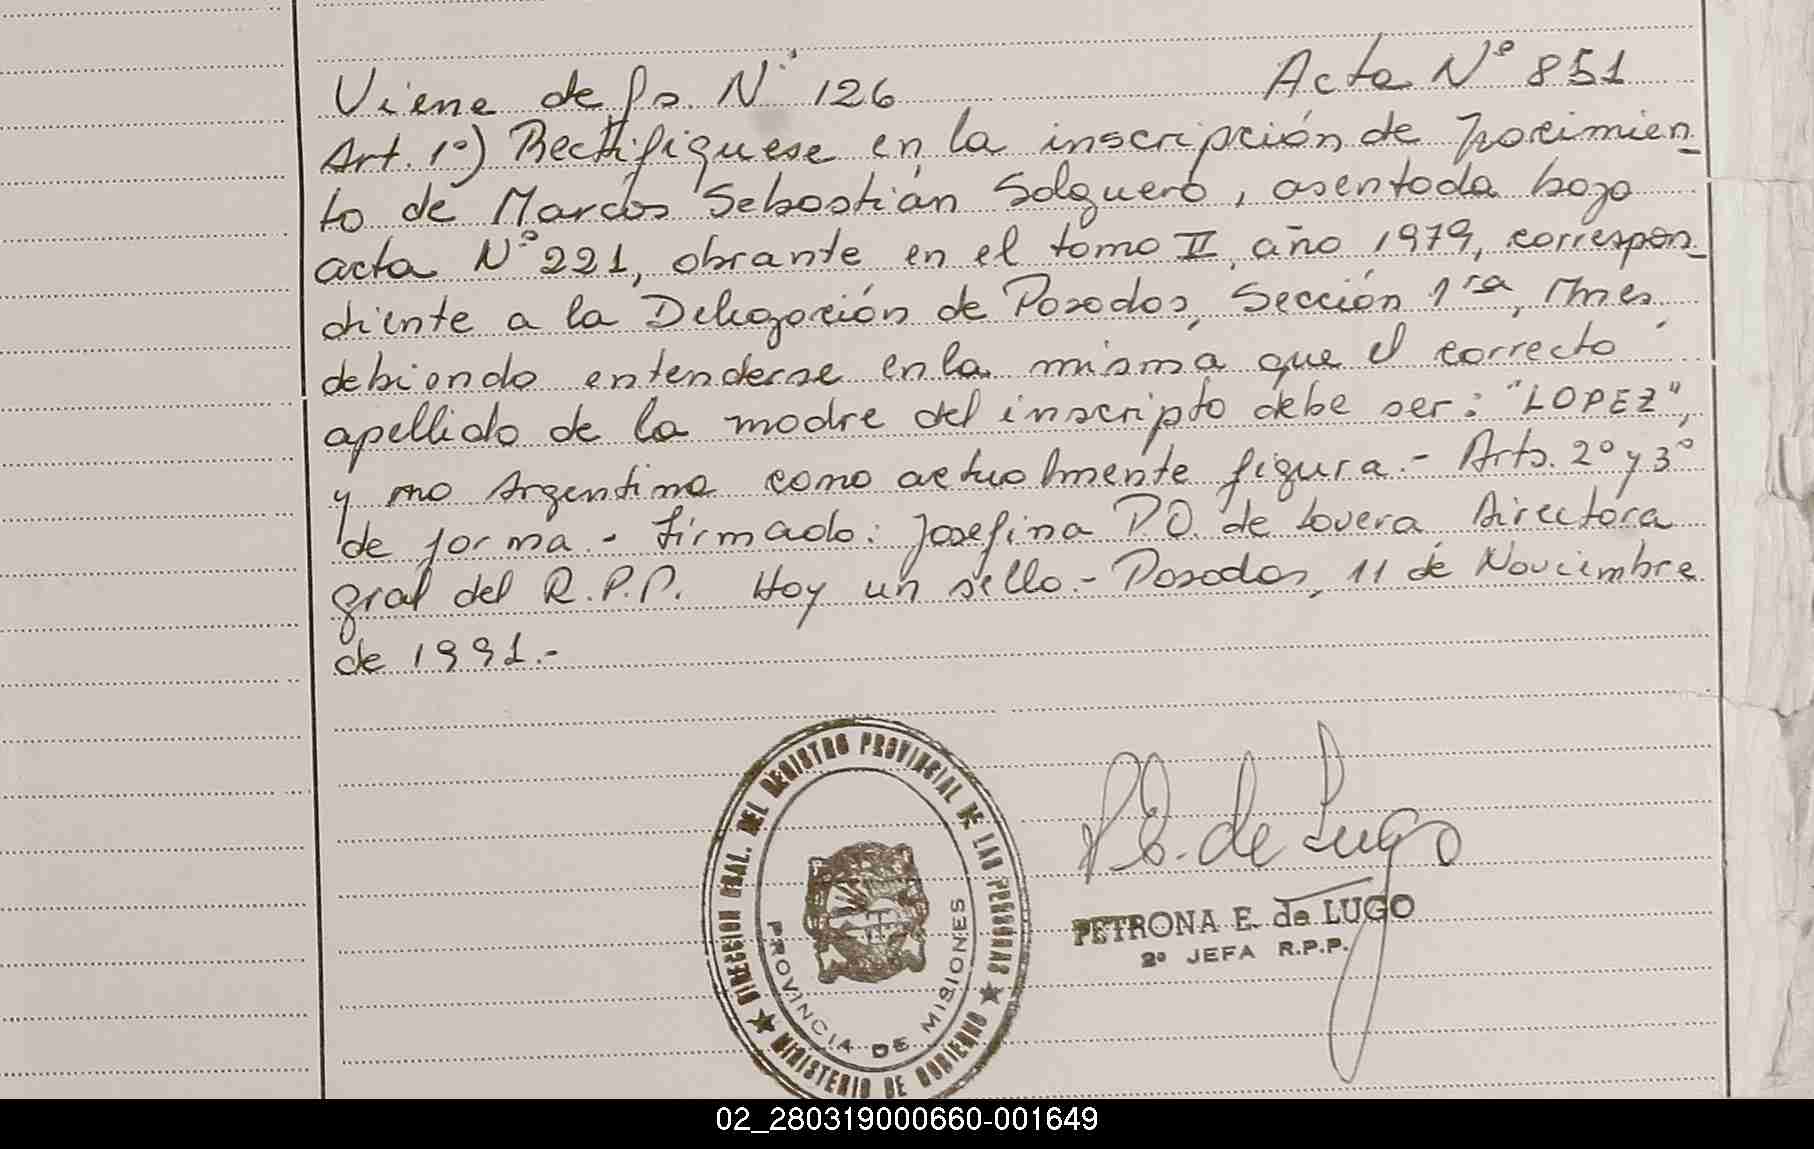 Viene de fs. Nº 126 Acta Nº 851
Art. 1º) Rectifíquese en la inscripción de nacimien_
to de Marcos Sebastián Salguero, asentada bajo
acta Nº 221, obrante en el tomo II, año 1979, correspon_
diente a la Delegación de Posadas, Sección 1ra, Mnes,
debiendo entenderse en la misma que el correcto
apellido de la madre del inscripto debe ser: "LOPEZ",
y no Argentina como actualmente figura.- Arts. 2º y 3º
de forma.- Firmado: Josefina P.O. de Lovera. Directora
gral del R.P.P. Hay un sello.- Posadas, 11 de Noviembre
de 1991.-
DIRECCION GRAL. DEL REGISTRO PROVINCIAL DE LAS PERSONAS
★ MINISTERIO DE GOBIERNO ★
PROVINCIA DE MISIONES
P.E. de Lugo
PETRONA E. de LUGO
2ª JEFA R.P.P.
02_280319000660-001649